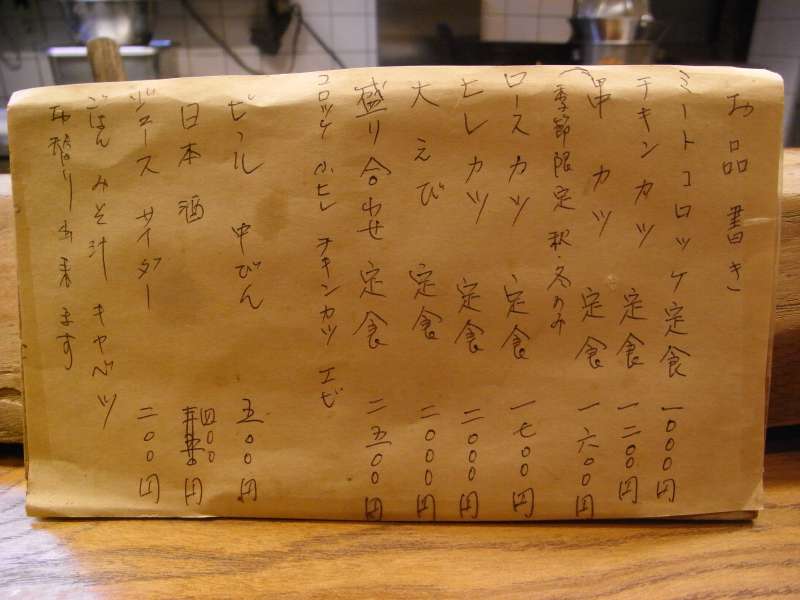 お品書き
ミートコロッケ定食 一〇〇〇円
チキンカツ 定食 一二〇〇円
串カツ 定食 一六〇〇円
(季節限定 秋・冬のみ
ロースカツ 定食 一七〇〇円
ヒレカツ 定食 二〇〇〇円
大えび 定食 二〇〇〇円
盛り合わせ 定食 二五〇〇円
コロッケ 小ヒレ チキンカツ エビ
ビール 中びん 五〇〇円
日本酒 四〇〇円
ジュース サイダー 二〇〇円
ごはん みそ汁 キャベツ
お替り出来ます